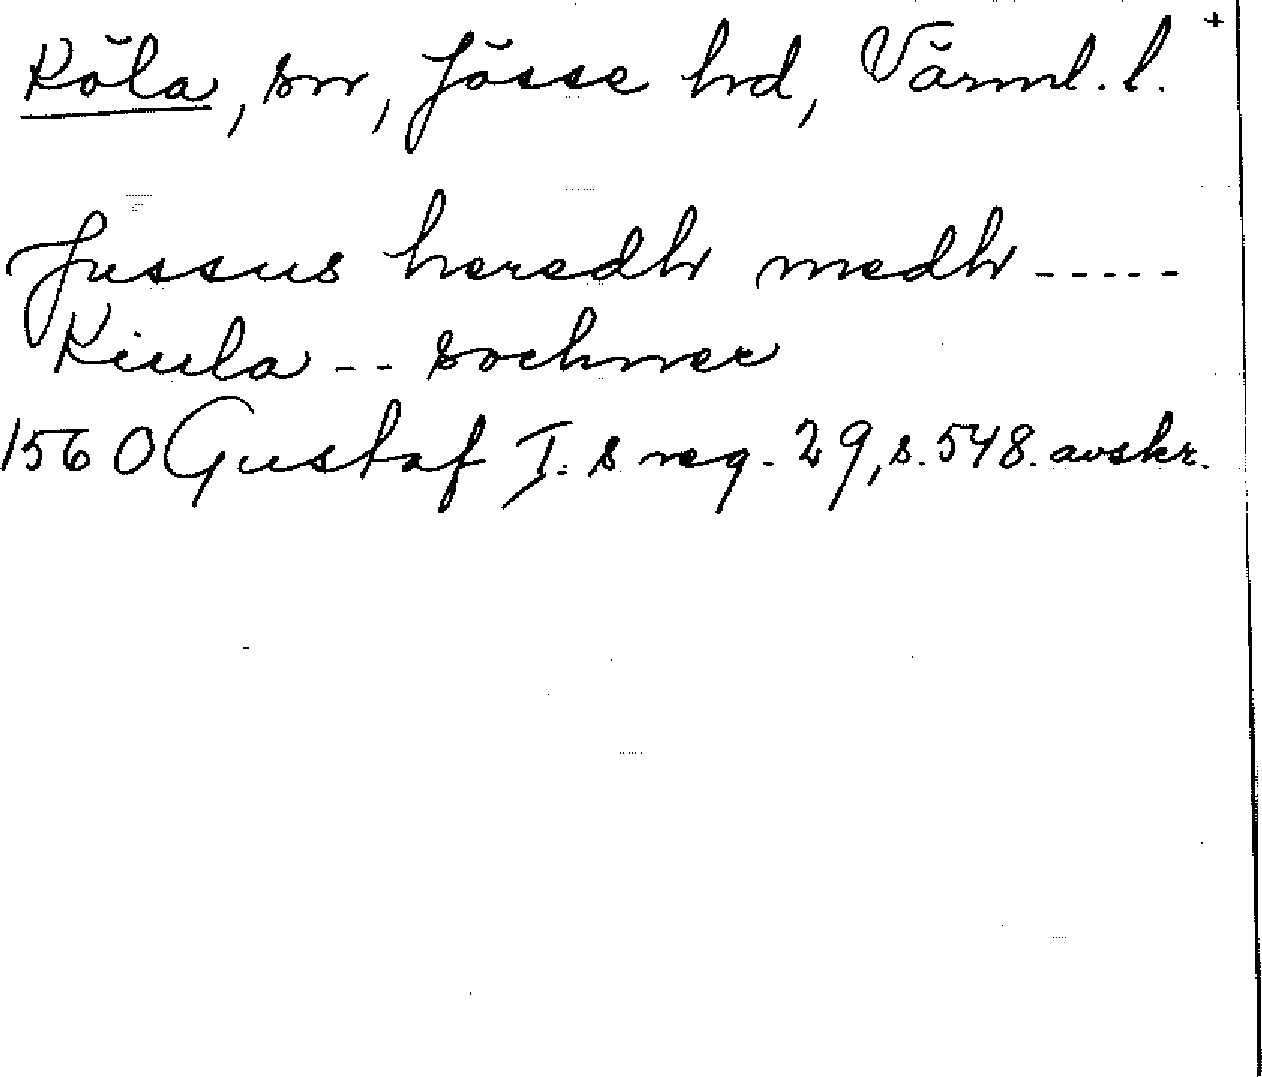 Köla, sn, Jösse hd, Värml. l. +
Jussus heredh medh -----
Kiula -- sochner
1560 Gustaf I. s reg. 29, s. 548. avskr.